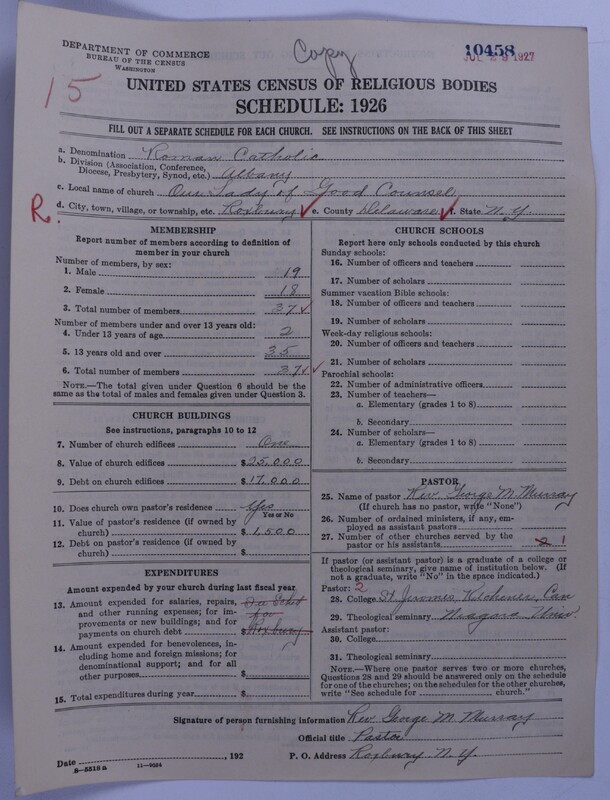 DEPARTMENT OF COMMERCE
BUREAU OF THE CENSUS
WASHINGTON
Copy
10458
JUL 29 1927
15
UNITED STATES CENSUS OF RELIGIOUS BODIES
SCHEDULE: 1926
FILL OUT A SEPARATE SCHEDULE FOR EACH CHURCH. SEE INSTRUCTIONS ON THE BACK OF THIS SHEET
a. Denomination Roman Catholic
b. Division (Association, Conference, Diocese, Presbytery, Synod, etc.) Albany
c. Local name of church Our Lady of Good Counsel
R. d. City, town, village, or township, etc. Roxbury e. County Delaware f. State N.Y.
MEMBERSHIP
Report number of members according to definition of
member in your church
Number of members, by sex:
1. Male 19
2. Female 18
3. Total number of members 37
Number of members under and over 13 years old:
4. Under 13 years of age 2
5. 13 years old and over 35
6. Total number of members 37
NOTE.—The total given under Question 6 should be the
same as the total of males and females given under Question 3.
CHURCH BUILDINGS
See instructions, paragraphs 10 to 12
7. Number of church edifices One
8. Value of church edifices $25,000
9. Debt on church edifices $17,000
10. Does church own pastor's residence Yes
Yes or No
11. Value of pastor's residence (if owned by
church) $1,500
12. Debt on pastor's residence (if owned by
church) $
EXPENDITURES
Amount expended by your church during last fiscal year
13. Amount expended for salaries, repairs,
and other running expenses; for im-
provements or new buildings; and for
payments on church debt $ Roxbury
14. Amount expended for benevolences,
including home and foreign missions; for
denominational support; and for all
other purposes $
15. Total expenditures during year $
CHURCH SCHOOLS
Report here only schools conducted by this church
Sunday schools:
16. Number of officers and teachers
17. Number of scholars
Summer vacation Bible schools:
18. Number of officers and teachers
19. Number of scholars
Week-day religious schools:
20. Number of officers and teachers
21. Number of scholars
Parochial schools:
22. Number of administrative officers
23. Number of teachers—
a. Elementary (grades 1 to 8)
b. Secondary
24. Number of scholars—
a. Elementary (grades 1 to 8)
b. Secondary
PASTOR
25. Name of pastor Rev. George M. Murray
(If church has no pastor, write "None")
26. Number of ordained ministers, if any, em-
ployed as assistant pastors
27. Number of other churches served by the
pastor or his assistants 2 1
If pastor (or assistant pastor) is a graduate of a college or
theological seminary, give name of institution below. (If
not a graduate, write "No" in the space indicated.)
Pastor: 2
28. College St. Jeromes Kitchener, Can
29. Theological seminary Niagara Univ.
Assistant pastor:
30. College
31. Theological seminary
NOTE.—Where one pastor serves two or more churches,
Questions 28 and 29 should be answered only on the schedule
for one of the churches; on the schedules for the other churches,
write "See schedule for church."
Signature of person furnishing information Rev. George M. Murray
Official title Pastor
Date , 192 P. O. Address Roxbury N.Y.
8-5518a 11-9024